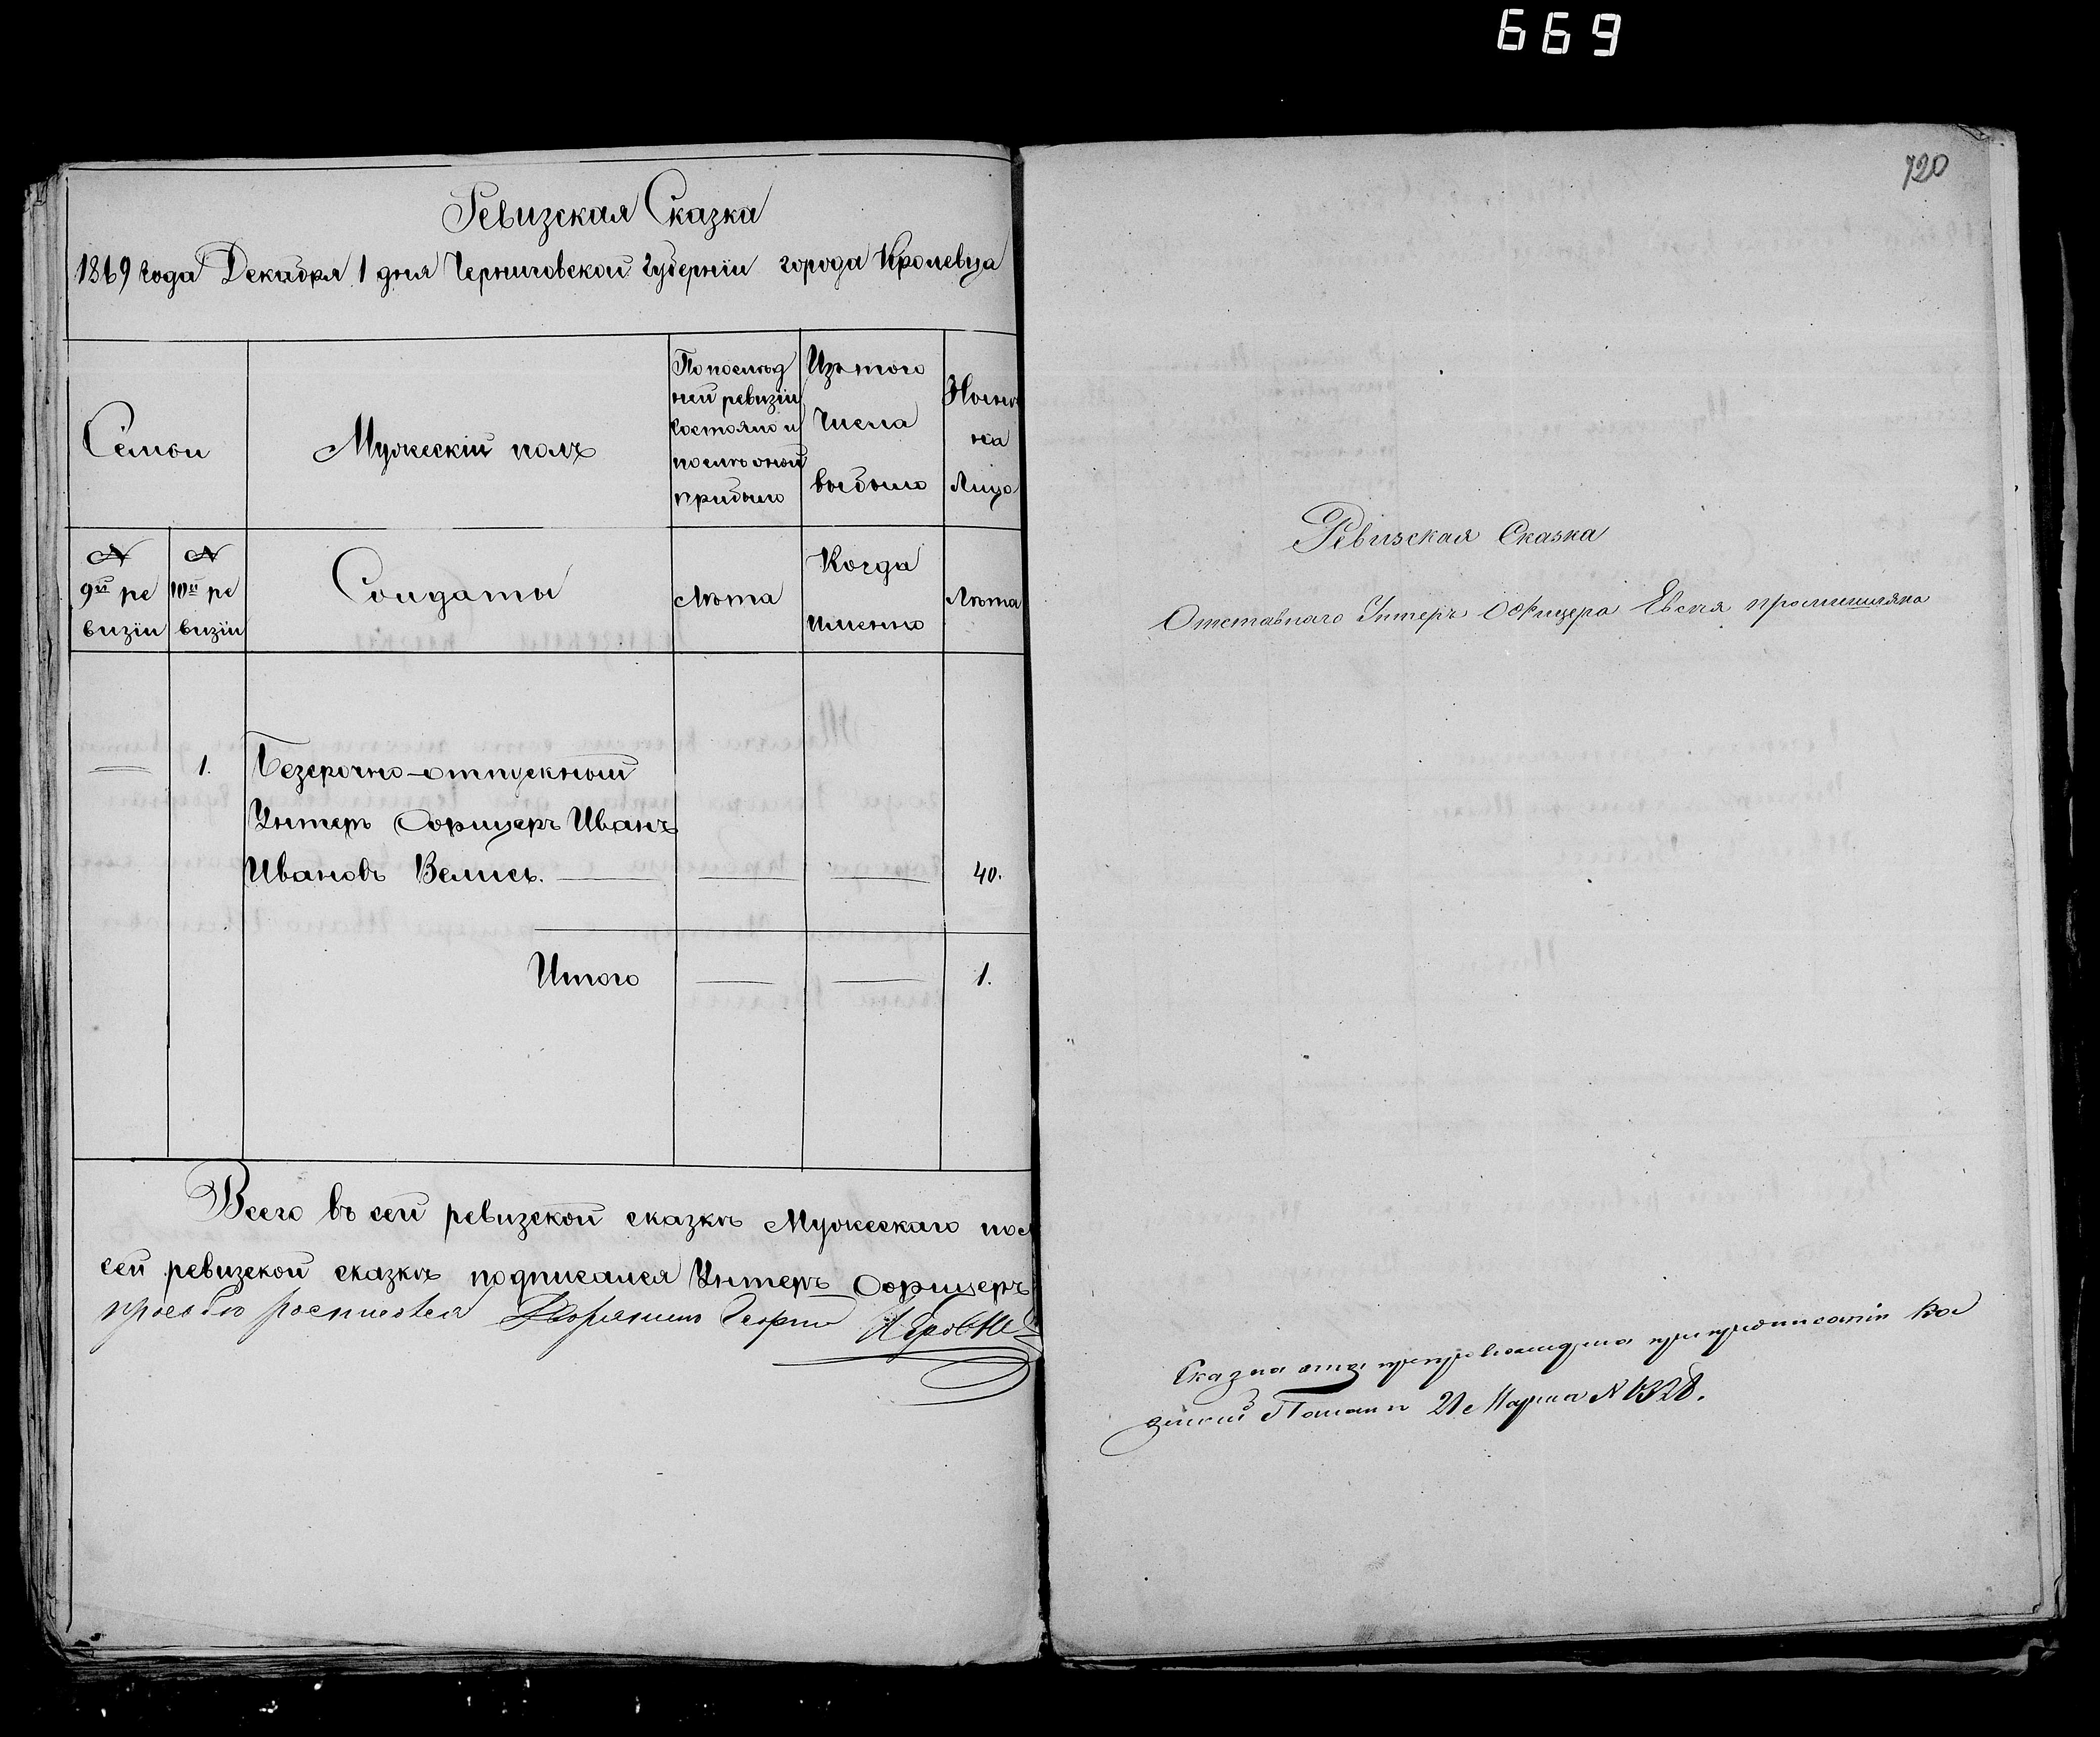 669
Ревизская Сказка
1869 года Декабря 1 дня Черниговской Губернiи города Кролевца
Семьи
Мужескiй полъ
По послѣд
ней ревизiи
состояло и
послѣ оной
прибыло
Изъ того
числа
выбыло
Нынѣ
на
Лицо
№
9й ре
визiи
№
10й ре
визiи
Солдаты
Лѣта
Когда
именно
Лѣта
1. Безсрочно-отпускной
Унтеръ Офицеръ Иванъ
Ивановъ Велись. 40.
Итого 1.
Всего въ сей ревизской сказкѣ Мужескаго пол
сей ревизской сказкѣ подписался Унтеръ Офицеръ
Дворянинъ Георгiй
720
Ревизская Сказка
Отставнаго Унтеръ Офицера Евсея
Сказка эта препровождена при предписанiи Каз
Палаты 21 Марта № 1328.